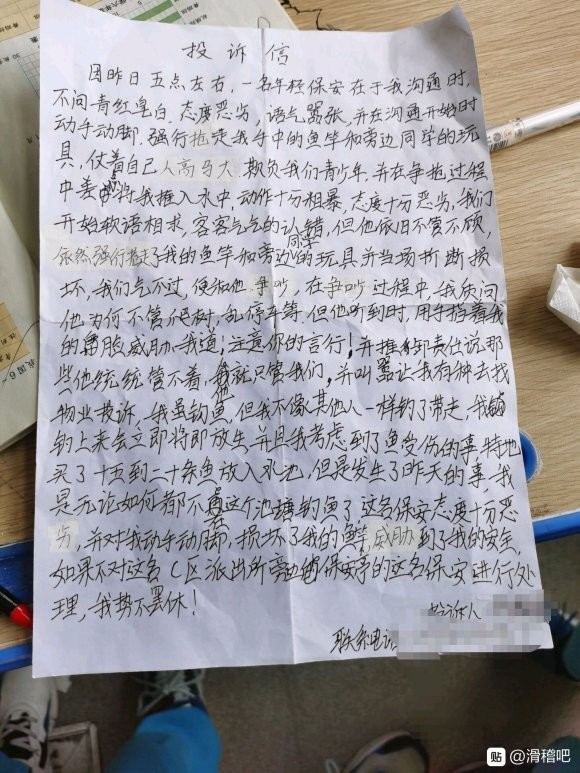 投诉信
因昨日五点左右，一名年轻保安在于我沟通时，
不问青红皂白，态度恶劣，语气嚣张，并在沟通开始时
动手动脚，强行抢走我手中的鱼竿和旁边同学的玩
具，仗着自己人高马大欺负我们青少年，并在争抢过程
中差点将我推入水中，动作十分粗暴，态度十分恶劣，我们
开始软语相求，客客气气的认错，但他依旧不管不顾，
依然强行抢了我的鱼竿和旁边同学的玩具并当场折断损
坏，我们气不过，便和他争吵，在争吵过程中，我质问
他为何不管爬树，乱停车等，但他听到时，用手指着我
的脸威胁我道：注意你的言行！并推卸责任说那
些他统统管不着，他就只管我们，并叫嚣让我有种去找
物业投诉，我虽钓鱼，但我不像其他人一样钓了带走，我
钓上来会立即将即放生，并且我考虑到了鱼受伤的事，特地
买了十五到二十条鱼放入水池，但是发生了昨天的事，我
是无论如何都不去这个池塘钓鱼了，这名保安态度十分恶
劣，并对我动手动脚，损坏了我的鱼竿，威胁到了我的安全，
如果不对这名C区派出所旁边的保安亭的这名保安进行处
理，我势不罢休！
投诉人
联系电话
贴 @滑稽吧